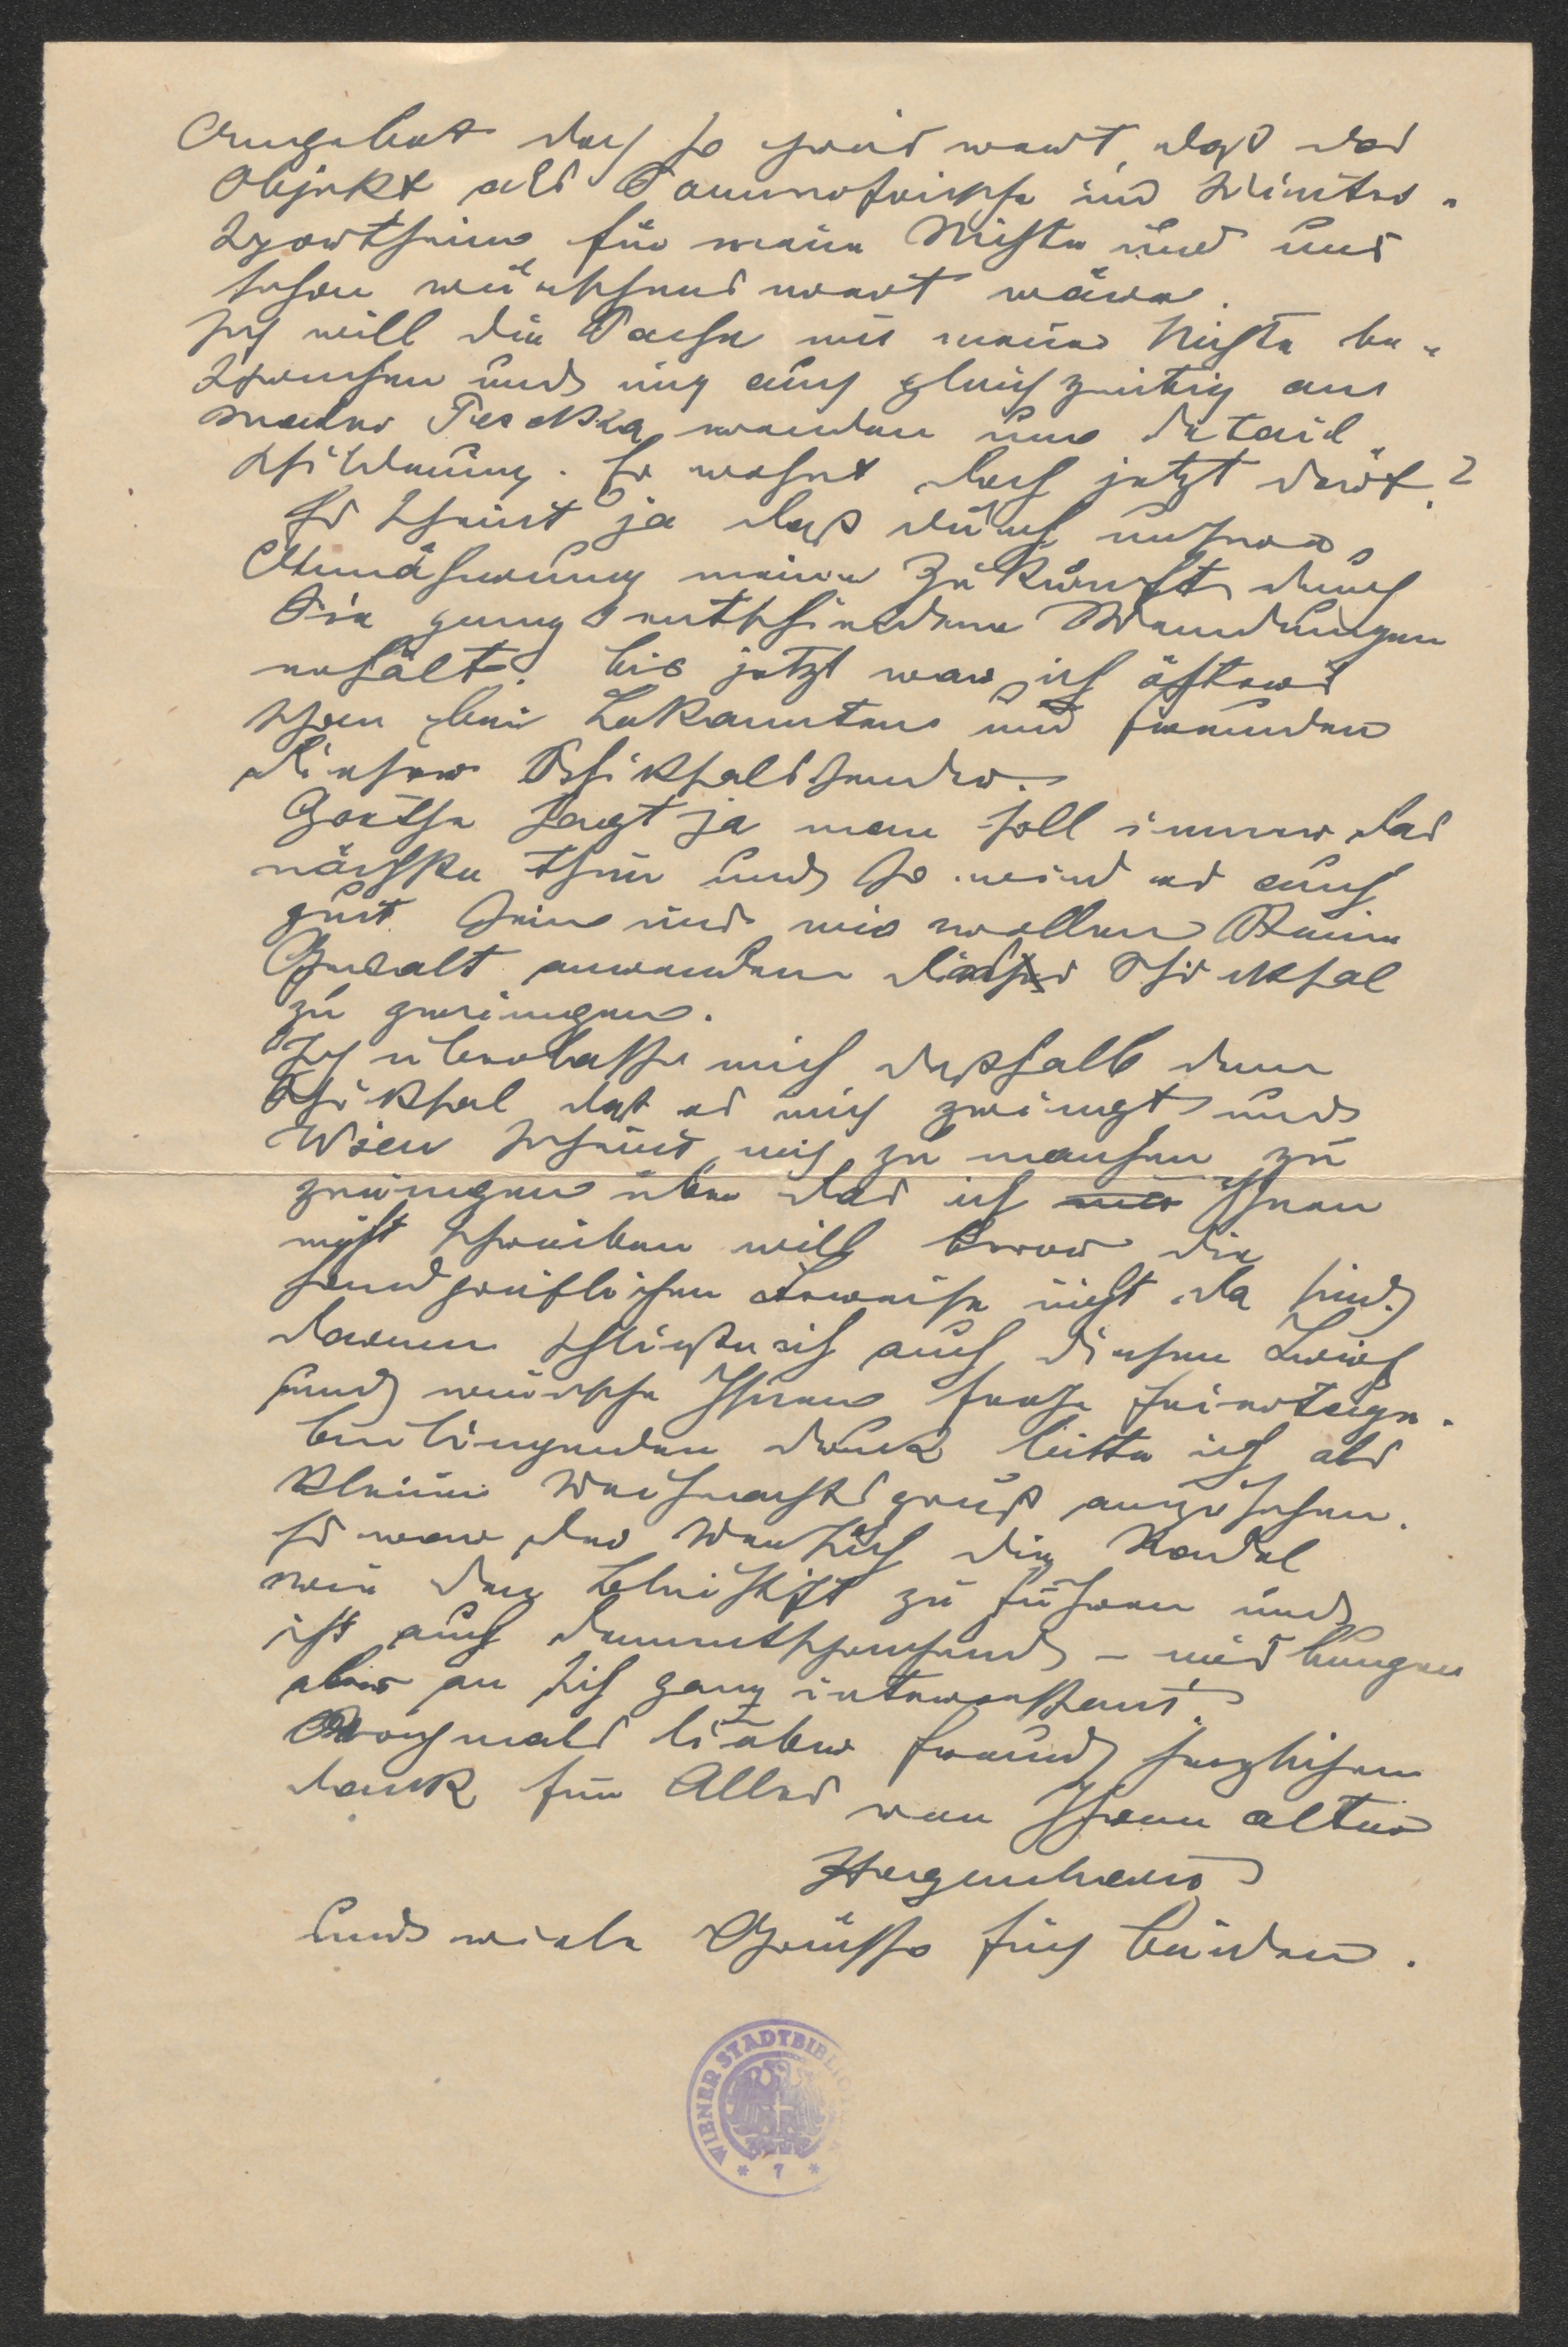 Angebot doch so preiswert, daß das
Objekt als Sommerfrische und Winter-
sportheim für meine Nichte und uns
sehr wünschenswert wäre.
Ich will die Sache mit meiner Nichte be-
sprechen und mich auch gleichzeitig an
Maler wenden um Detail
schilderung. Er wohnt doch jetzt dort?
Es scheint ja daß durch unsere
Annäherung meine Zukunft durch
Sie ganz entschiedene Wendungen
erhält. bis jetzt war ich öfters
schon bei Bekannten und Freunden
dieser Schicksalssender.
Goethe sagt ja man soll immer das
nächste thun und so wird es auch
gut sein und wir wollen keine
Gewalt anwenden dieses Schicksal
zu zwingen.
Ich überlasse mich deßhalb dem
Schiksal daß es mich zwingt und
Wien scheint mich zu manchem zu
zwingen über das ich Ihnen
nicht schreiben will bevor die
handgreiflichen Beweise nicht da sind.
darum schließe ich auch diesen Brief
und wünsche Ihnen frohe Feiertage.
beiliegenden Druck bitte ich als
kleinen Weihnachtsgruß anzusehen.
Es war der Versuch die Nadel
wie den Bleistift zu führen und
ist auch dementsprechend – mislungen
aber an sich ganz interessant.
Nochmals lieber Freund herzlichen
dank für Alles von Ihrem alten
Hegenbarth
und viele Grüsse für beiden.
WIENER STADTBIBLIO
* 7 *